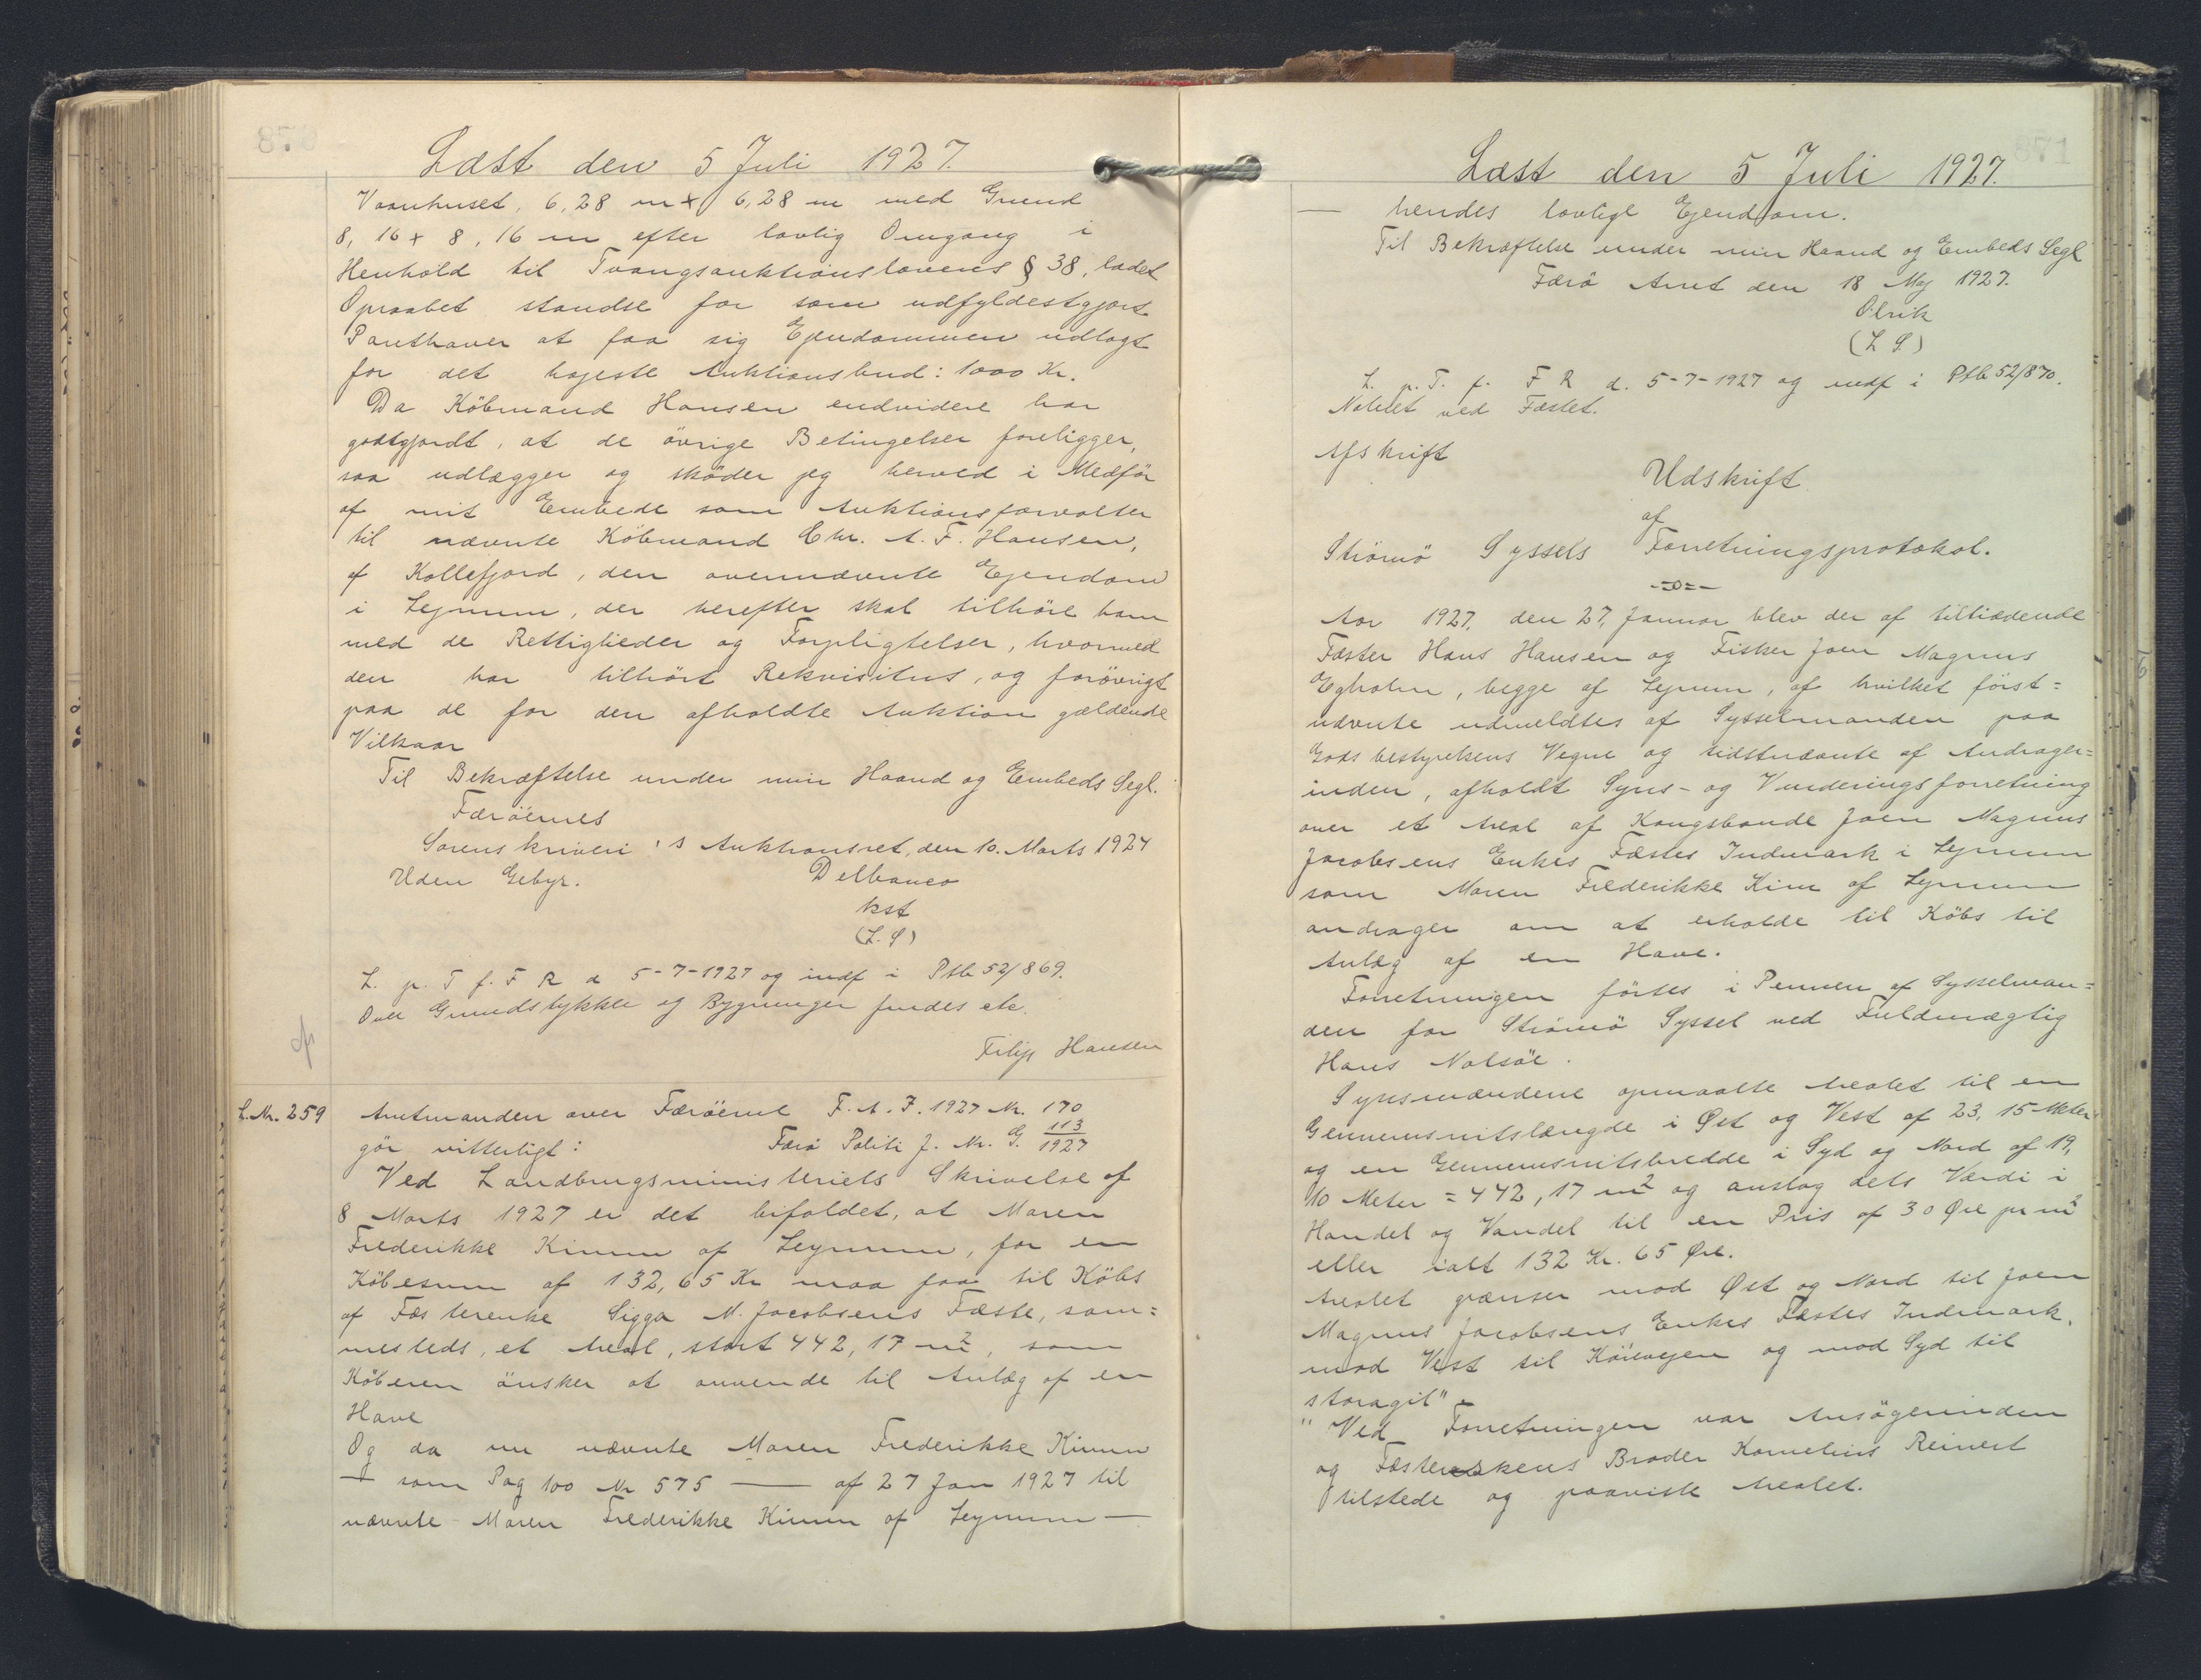 Læst den 5 Juli 1927.
Vaanhuset, 6,28 m x 6,28 m med Grund
8,16 x 8,16 m efter lovlig Omgang i
Henhold til Tvangsauktionslovens § 38, ladet
Opraabet standse for som udfyldestgjort
Panthaver at faa sig Ejendommen udlagt
for det højeste Auktionsbud: 1000 Kr.
Da Köbmand Hansen endvidere har
godtgjordt, at de övrige Betingelser foreligger,
saa udlægger og sköder jeg herved i Medför
af mit Embede som Auktionsforvalter
til nævnte Köbmand Chr. A. F. Hansen,
af Kollefjord, den ovennævnte Ejendom
i Lejnum, der herefter skal tilhöre ham
med de Rettigheder og Forpligtelser, hvormed
den har tilhört Rekvisitus, og forövrigt
paa de for den afholdte Auktion gældende
Vilkaar
Til Bekræftelse under min Haand og Embeds Segl.
Færöernes
Sorenskriveri 's Auktionsret, den 10. Marts 1927
Uden Gebyr. Delbanco
kst
(L. S)
L. p. T f. F R d 5-7-1927 og indf i Ptb 52/869.
Over Grundstykke og Bygninger findes etc.
Filip Hansen
L. Nr. 259 Amtmanden over Færöerne F. A. J. 1927 Nr. 170
gör vitterligt: Færö Politi J. Nr. G. 113/1927
Ved Landbrugsministeriets Skrivelse af
8 Marts 1927 er det bifaldet, at Maren
Frederikke Kimm af Leynum, for en
Köbesum af 132,65 Kr maa faa til Köbs
af Fæsterenke Sigga M. Jacobsens Fæste, sam=
mesteds, et Areal, stort 442,17 m2, som
Köberen önsker at anvende til Anlæg af en
Have
Og da nu nævnte Maren Frederikke Kimm
— som Pag 100 Nr 575 — af 27 Jan 1927 til
nævnte Maren Frederikke Kimm af Leynum —
Læst den 5 Juli 1927.
— hendes lovlige Ejendom.
Til Bekræftelse under min Haand og Embeds Segl
Færö Amt den 18 Maj 1927.
Olrik
(L S)
L. p. T. f. F R d. 5-7-1927 og indf i Ptb 52/870.
Notilet ved Fæstet.
Afskrift
Udskrift
af
Strömö Syssels Forretningsprotokol.
-=0=-
Aar 1927, den 27, Januar blev der af tiltrædende
Fæster Hans Hansen og Fisker Joen Magnus
Egholm, begge af Lejnum, af hvilket först=
nævnte udmeldtes af Sysselmanden paa
Godsbestyrelsens Vegne og sidstnævnte af Andrager=
inden, afholdt Syns- og Vurderingsforretning
over et Areal af Kongsbonde Joen Magnus
Jacobsens Enkes Fæstes Indmark i Lejnum
som Maren Frederikke Kim af Lejnum
andrager om at erholde til Köbs til
Anlæg af en Have.
Forretningen förtes i Pennen af Sysselman=
den for Strömö Syssel ved Fuldmægtig
Hans Nolsöe.
Synsmændene opmaalte Arealet til en
Gennemsnitslængde i Øst og Vest af 23,15 Meter
og en Gennemsnitsbredde i Syd og Nord af 19,
10 Meter = 442,17 m2 og anslog dets Værdi i
Handel og Vandel til en Pris af 30 Øre pr m2
eller ialt 132 Kr. 65 Øre.
Arealet grænser mod Øst og Nord til Joen
Magnus Jacobsens Enkes Fæstes Indmark,
mod Vest til Köivejen og mod Syd til
storagil"
" Ved Forretningen var Ansögerinden
og Fæsterenkens Broder Kornelius Reinert
tilstede og paaviste Arealet.